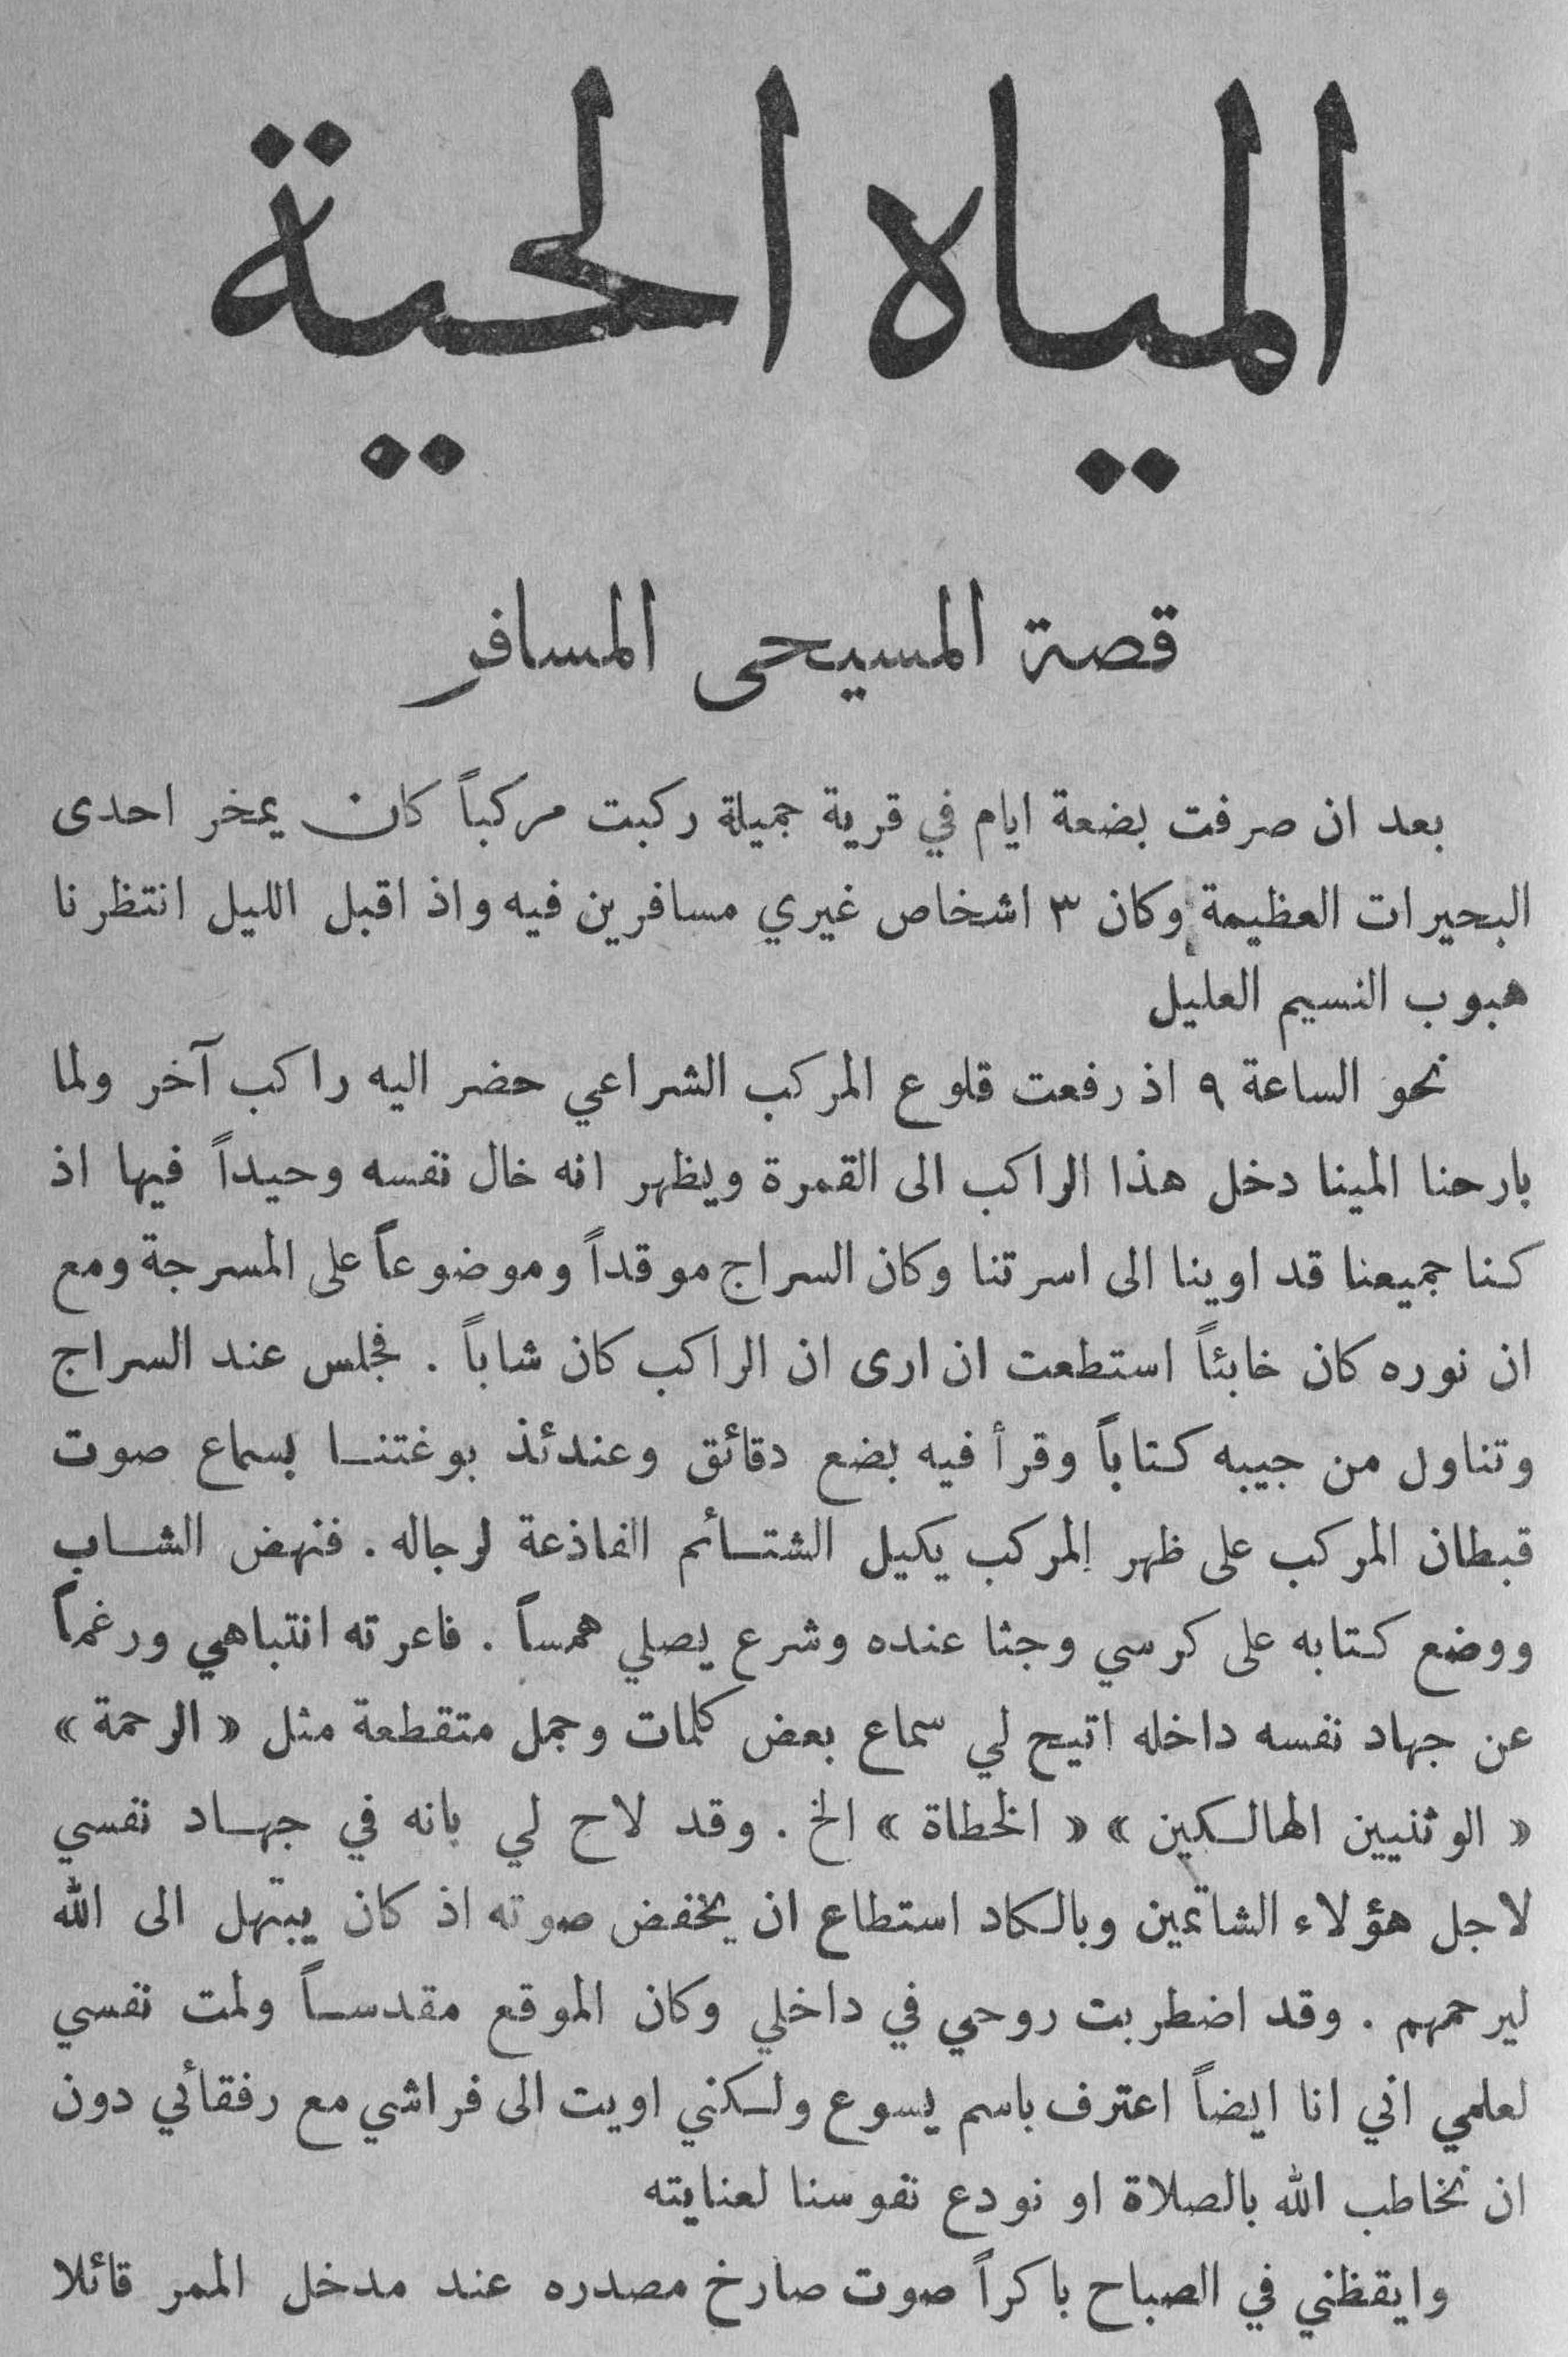 المياه الحية
قصة المسيحى المسافر
بعد ان صرفت بضعة ايام في قرية جميلة ركبت مركباً كان يمخر احدى
البحيرات العظيمة وكان ٣ اشخاص غيري مسافرين فيه واذ اقبل الليل انتظرنا
هبوب النسيم العليل
نحو الساعة ٩ اذ رفعت قلوع المركب الشراعي حضر اليه راكب آخر ولما
بارحنا المينا دخل هذا الراكب الى القمرة ويظهر انه خال نفسه وحيداً فيها اذ
كنا جميعنا قد اوينا الى اسرتنا وكان السراج موقداً وموضوعاً على المسرجة ومع
ان نوره كان خابئاً استطعت ان ارى ان الراكب كان شاباً . فجلس عند السراج
وتناول من جيبه كتاباً وقرأ فيه بضع دقائق وعندئذ بوغتنا بسماع صوت
قبطان المركب على ظهر المركب يكيل الشتائم الفاذعة لرجاله . فنهض الشاب
ووضع كتابه على كرسي وجثا عنده وشرع يصلي همساً . فاعرته انتباهي ورغماً
عن جهاد نفسه داخله اتيح لي سماع بعض كلمات وجمل متقطعة مثل « الرحمة »
« الوثنيين الهالكين » « الخطاة » الخ . وقد لاح لي بانه في جهاد نفسي
لاجل هؤلاء الشاتمين وبالكاد استطاع ان يخفض صوته اذ كان يبتهل الى الله
ليرحمهم . وقد اضطربت روحي في داخلي وكان الموقع مقدساً ولمت نفسي
لعلمي اني انا ايضاً اعترف باسم يسوع ولكني اويت الى فراشي مع رفقائي دون
ان نخاطب الله بالصلاة او نودع نفوسنا لعنايته
وايقظني في الصباح باكراً صوت صارخ مصدره عند مدخل الممر قائلا